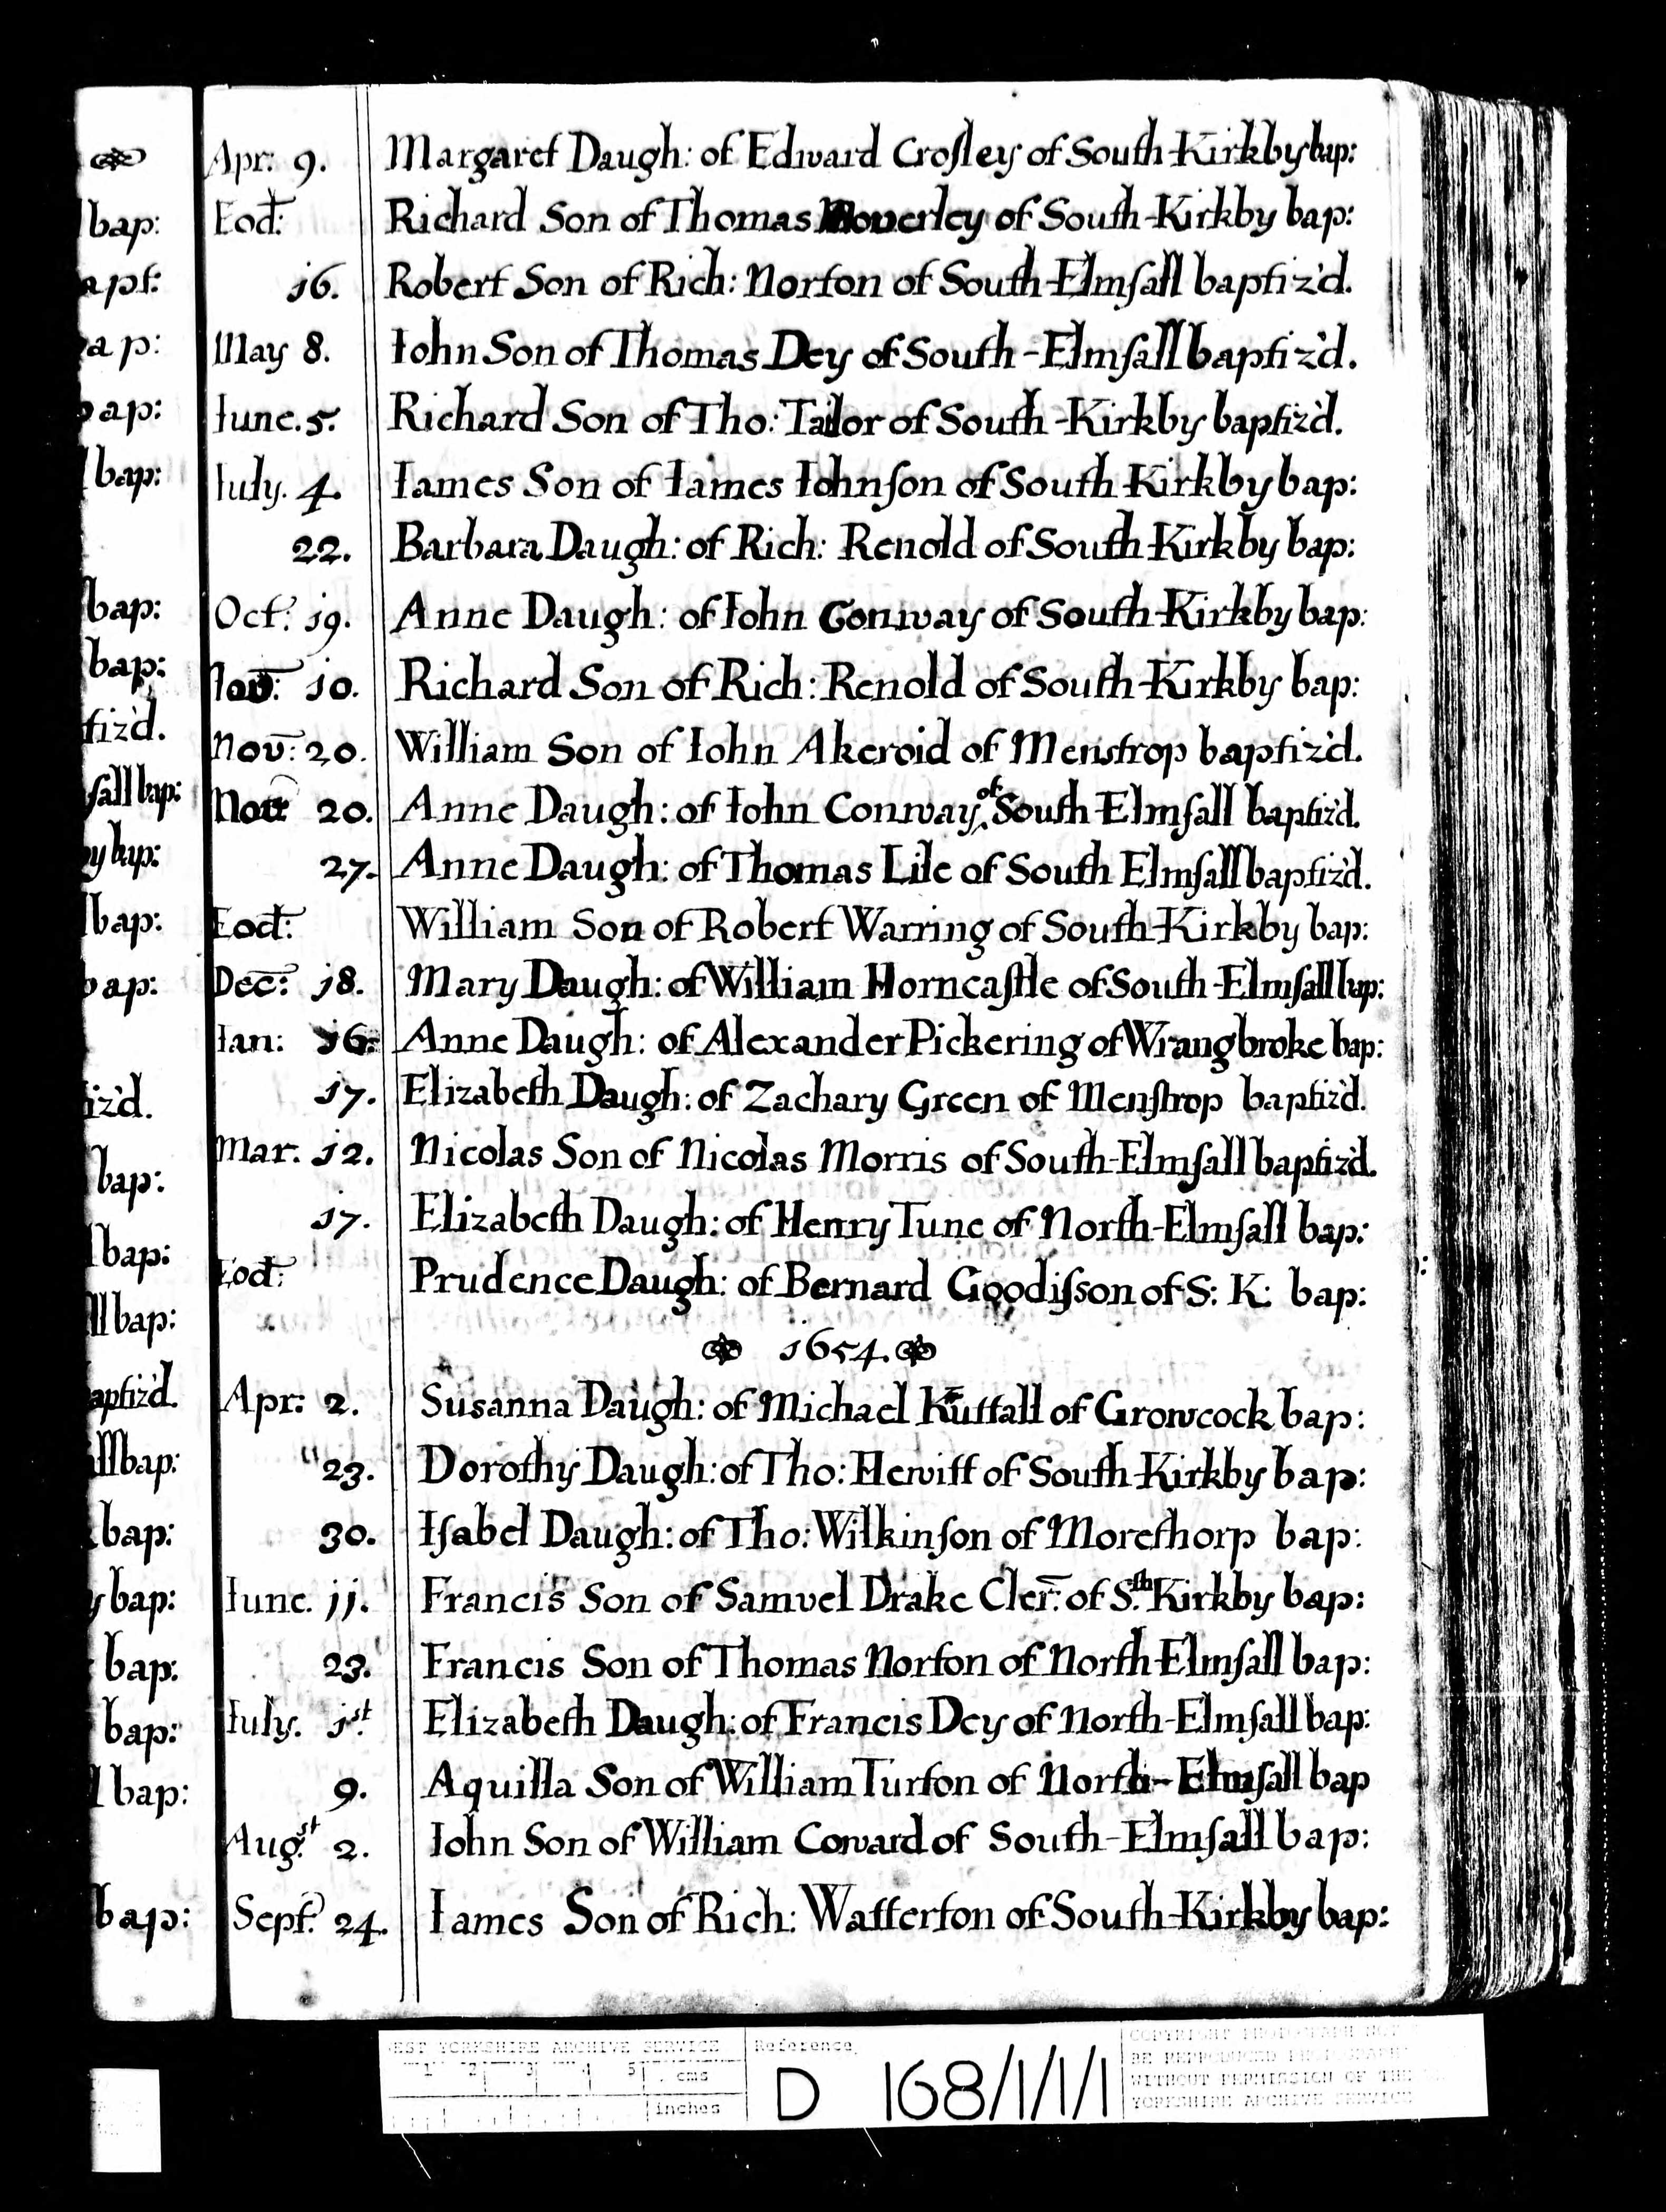 Apr: 9. Margaret Daugh: of Edward Croſley of South-Kirkby bap:
Eod: Richard Son of Thomas of South-Kirkby bap:
16. Robert Son of Rich: Norton of South-Elmſall baptiz'd.
May 8. Iohn Son of Thomas Dey of South-Elmſall baptiz'd.
Iune. 5. Richard Son of Tho: Tailor of South-Kirkby baptiz'd.
Iuly. 4. Iames Son of Iames Iohnſon of South-Kirkby bap:
22. Barbara Daugh: of Rich: Renold of South-Kirkby bap:
Oct: 19. Anne Daugh: of Iohn Conway of South-Kirkby bap:
Nov: 10. Richard Son of Rich: Renold of South-Kirkby bap:
Nov: 20. William Son of Iohn Akeroid of Menstrop baptiz'd.
Nov: 20. Anne Daugh: of Iohn Conway of South-Elmſall baptiz'd.
27. Anne Daugh: of Thomas Lile of South Elmſall baptiz'd.
Eod: William Son of Robert Warring of South-Kirkby bap:
Dec: 18. Mary Daugh: of William Horncaſtle of South-Elmſall bap:
Ian: 16. Anne Daugh: of Alexander Pickering of Wrangbroke bap:
17. Elizabeth Daugh: of Zachary Green of Menſtrop baptiz'd.
Mar. 12. Nicolas Son of Nicolas Morris of South-Elmſall baptiz'd.
17. Elizabeth Daugh: of Henry Tune of North-Elmſall bap:
Eod: Prudence Daugh: of Bernard Goodiſson of S: K: bap:
1654.
Apr: 2. Susanna Daugh: of Michael Kuttall of Growcock bap:
23. Dorothy Daugh: of Tho: Hewitt of South-Kirkby bap:
30. Iſabel Daugh: of Tho: Wilkinſon of Morethorp bap:
Iune. 11. Francis Son of Samvel Drake Cler: of S.th Kirkby bap:
23. Francis Son of Thomas Norton of North-Elmſall bap:
Iuly. 1st. Elizabeth Daugh: of Francis Dey of North-Elmſall bap:
9. Aquilla Son of William Turton of North-Elmſall bap
Aug:st 2. Iohn Son of William Coward of South-Elmſall bap:
Sept: 24. Iames Son of Rich: Watterton of South-Kirkby bap:
EST YORKSHIRE ARCHIVE SERVICE
1 2 3 4 5 cms
inches
Reference
D 168/1/1/1
COPYRIGHT PHOTOGRAPH NOT
BE REPRODUCED
WITHOUT PERMISSION OF THE
YORKSHIRE ARCHIVE SERVICE